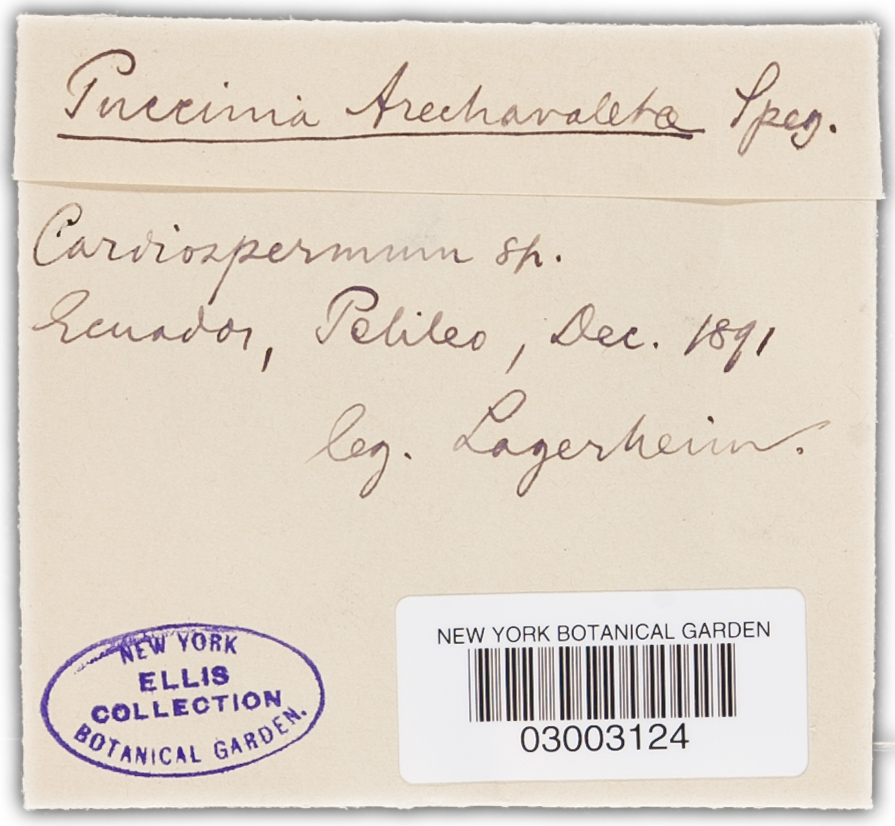 Puccinia Arechavaletæ Speg.
Cardiospermum sp.
Ecuador, Pelileo, Dec. 1891
leg. Lagerheim.
NEW YORK
ELLIS
COLLECTION
BOTANICAL GARDEN.
NEW YORK BOTANICAL GARDEN
03003124